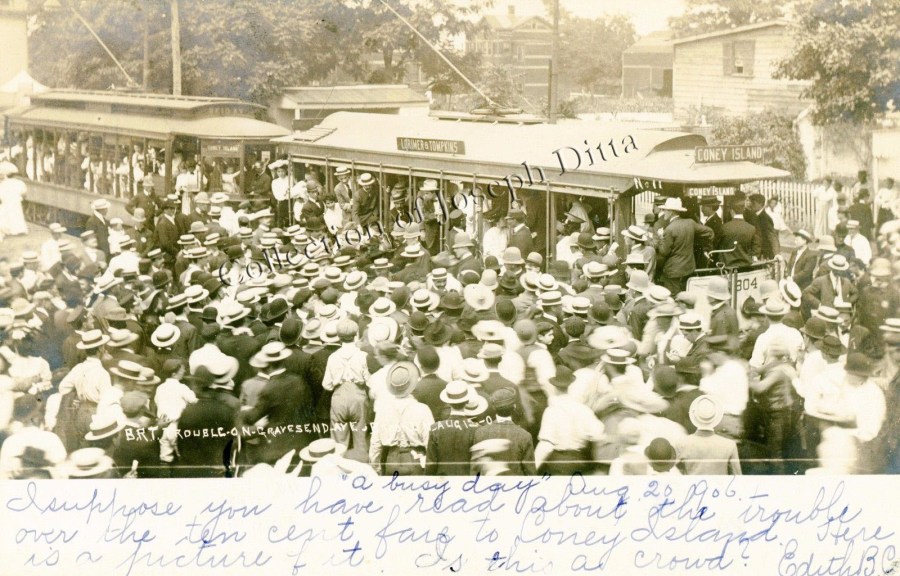 LORIMER & TOMPKINS
CONEY ISLAND
CONEY ISLAND
No 11
804
Collection of Joseph Ditta
B.R.T. TROUBLE-ON-GRAVESEND AVE
"a busy day" Aug 20 1906.
I suppose you have read about the trouble
over the ten cent fare to Coney Island. Here
is a picture of it. Is this a crowd? Edith B.C